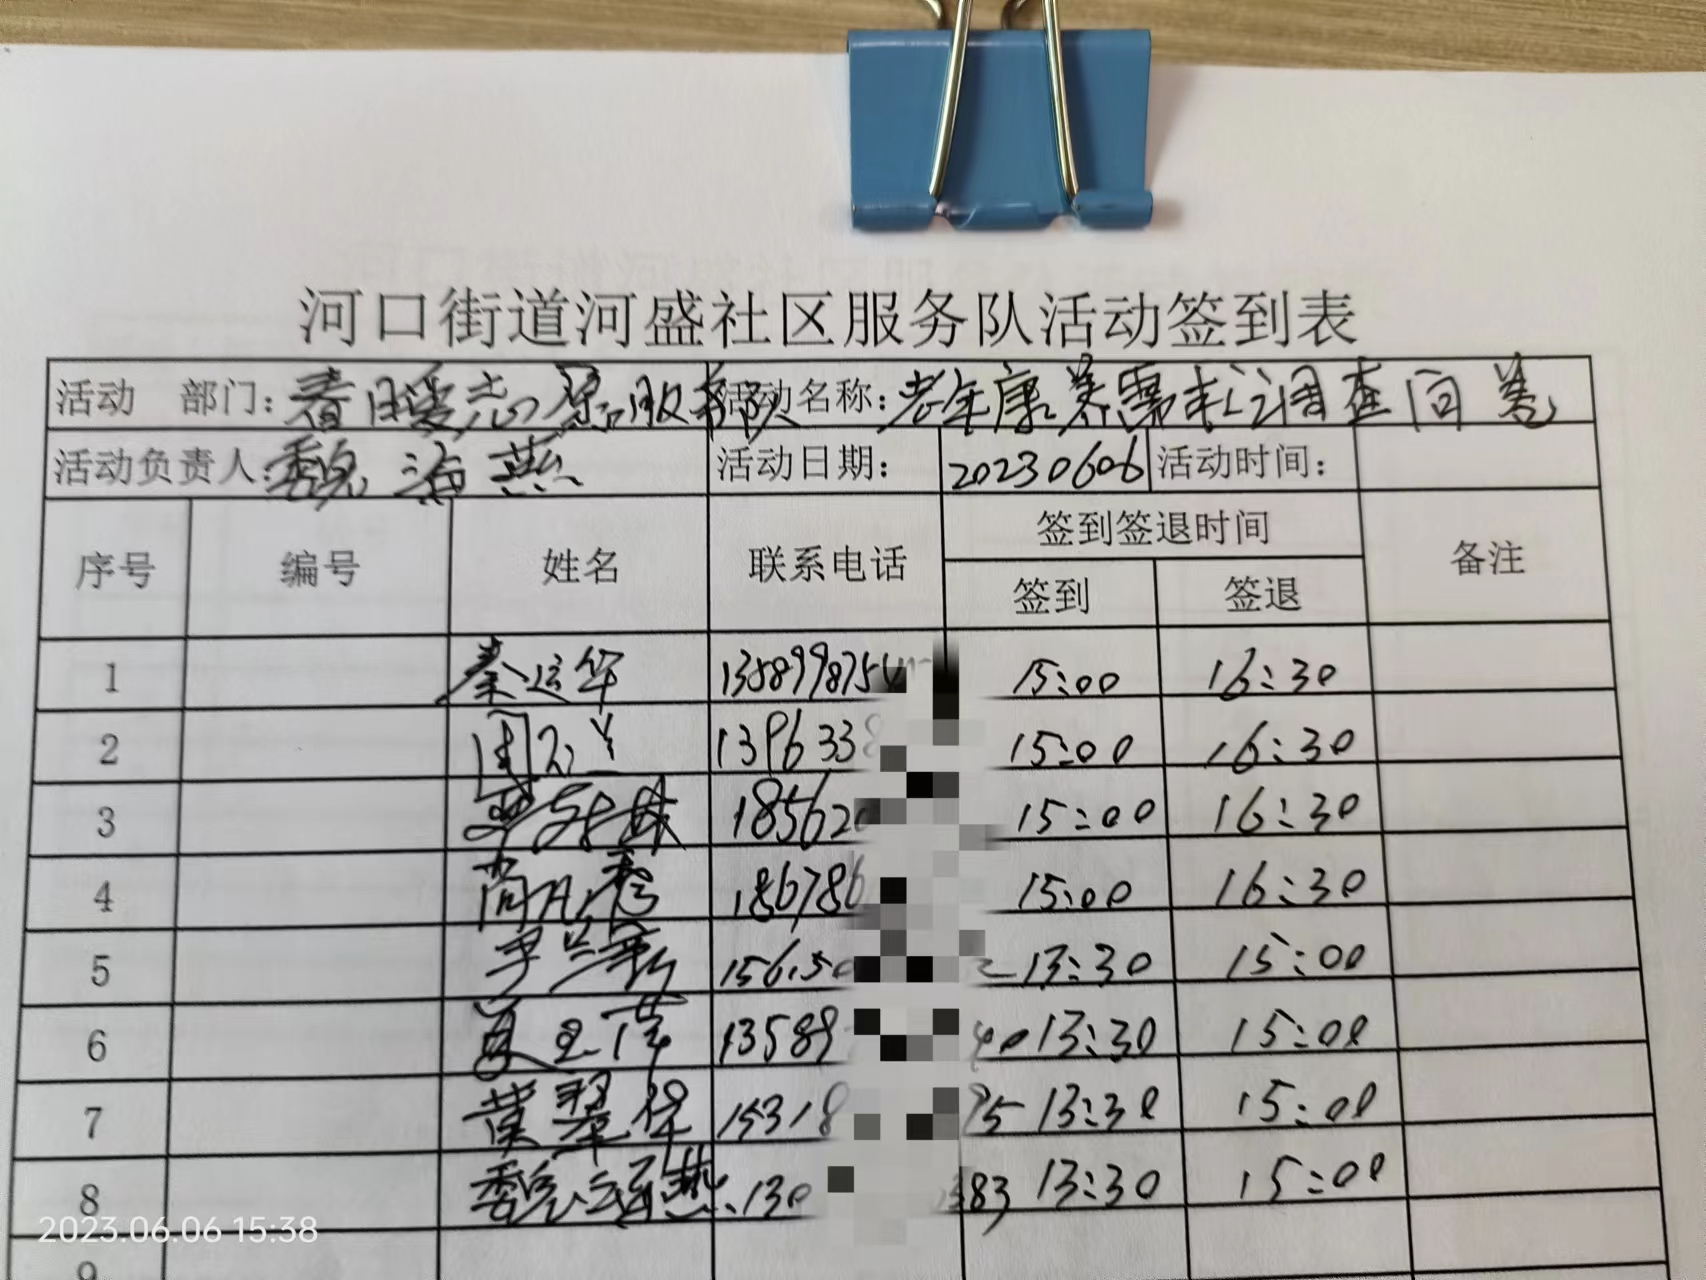 河口街道河盛社区服务队活动签到表
活动 部门: 春暖志愿服务队 活动名称: 老年康养需求调查问卷
活动负责人: 魏海燕 活动日期: 20230606 活动时间:
序号 编号 姓名 联系电话 签到签退时间 备注
签到 签退
1 秦运华 1358998754 15:00 16:30
2 139633 15:00 16:30
3 185620 15:00 16:30
4 186786 15:00 16:30
5 李兰新 15650 13:30 15:00
6 13589 40 13:30 15:00
7 15318 95 13:30 15:00
8 魏海燕 130 383 13:30 15:00
9
2023.06.06 15:38